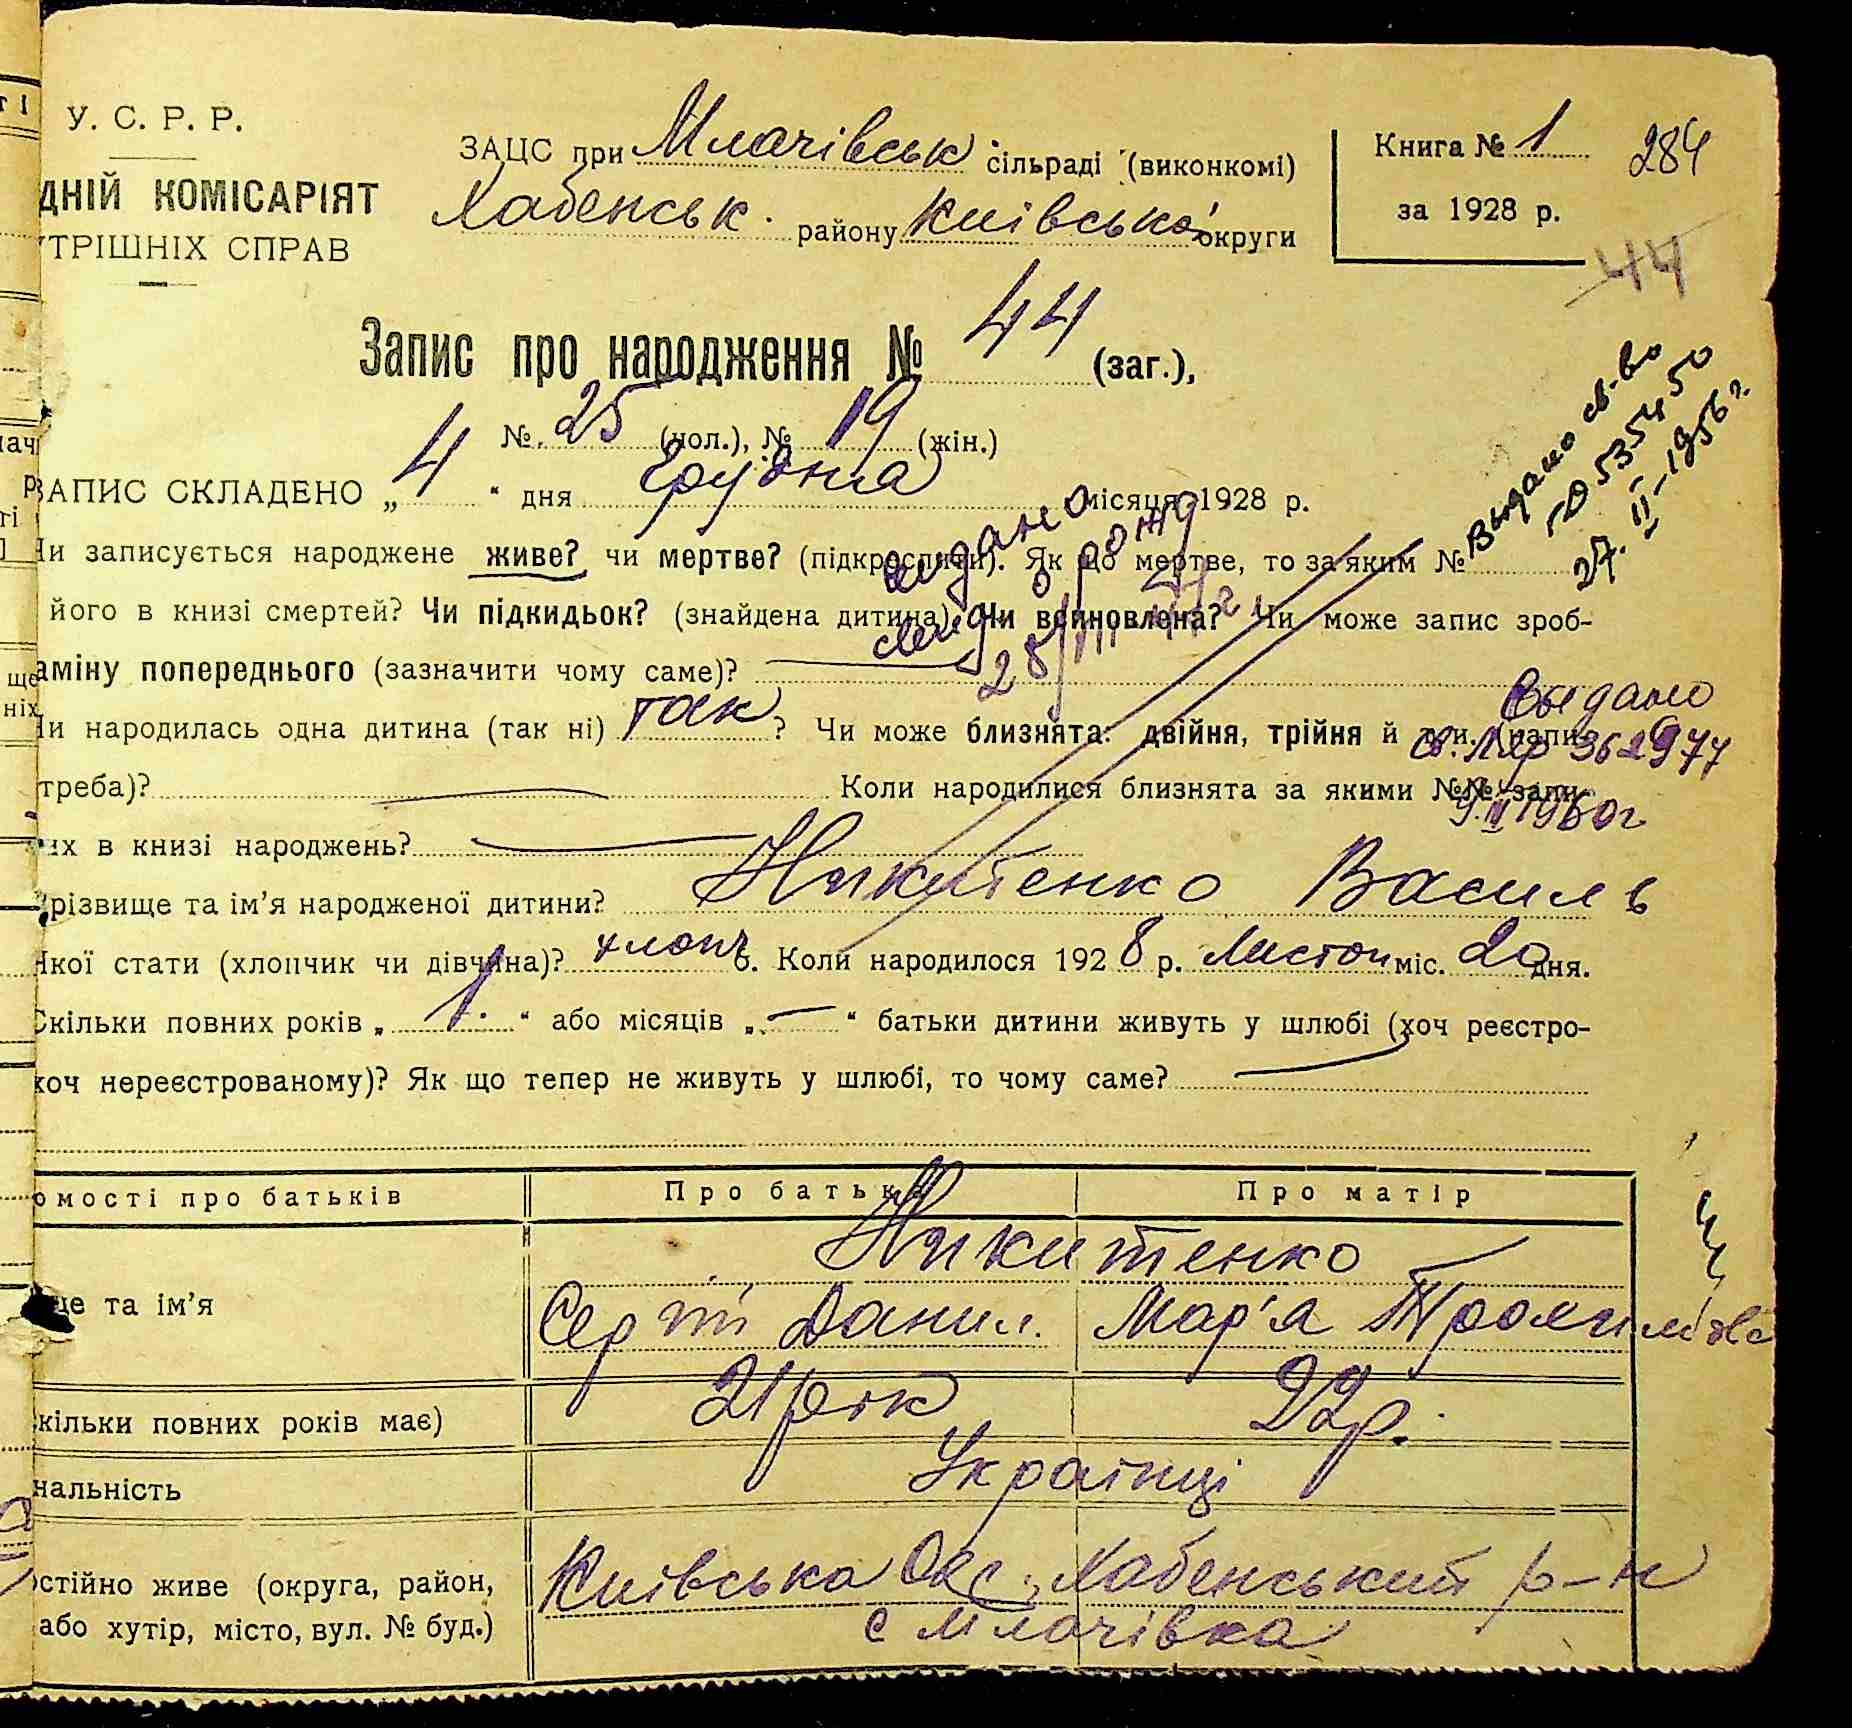 У. С. Р. Р.
ДНІЙ КОМІСАРІЯТ
УТРІШНІХ СПРАВ
ЗАЦС при Млачівськ сільраді (виконкомі)
Хабенськ. району Київської округи
Книга № 1
за 1928 р.
284
44
Запис про народження № 44 (заг.),
№ 25 (чол.), № 19 (жін.)
ЗАПИС СКЛАДЕНО „ 4 “ дня Грудня місяця 1928 р.
Чи записується народжене живе? чи мертве? (підкреслити). Як що мертве, то за яким №
його в книзі смертей? Чи підкидьок? (знайдена дитина) Чи всиновлена? Чи може запис зроб-
аміну попереднього (зазначити чому саме)?
Чи народилась одна дитина (так ні) так ? Чи може близнята: двійня, трійня й т. и. (напис
треба)? Коли народилися близнята за якими №№ запи-
их в книзі народжень?
Прізвище та ім’я народженої дитини? Никитенко Василь
Якої стати (хлопчик чи дівчина)? хлопч. Коли народилося 1928 р. Листоп міс. 20 дня.
Скільки повних років „ 1. “ або місяців „ — “ батьки дитини живуть у шлюбі (хоч реєстро-
хоч нереєстрованому)? Як що тепер не живуть у шлюбі, то чому саме?
Выдано св-во
ГЮ 535450
27. II-1956 г.
видано
свид о рожд
28/III 47 г.
Выдано
св. 362977
9.III 1960г
омості про батьків Про батька Про матір
Никитенко
ще та ім’я Сергій Данил. Мар'я Трохимівна
кільки повних років має) 21 рік 22р.
нальність Українці
остійно живе (округа, район, Київська Окр., Хабенський р-н
або хутір, місто, вул. № буд.) с Млачівка